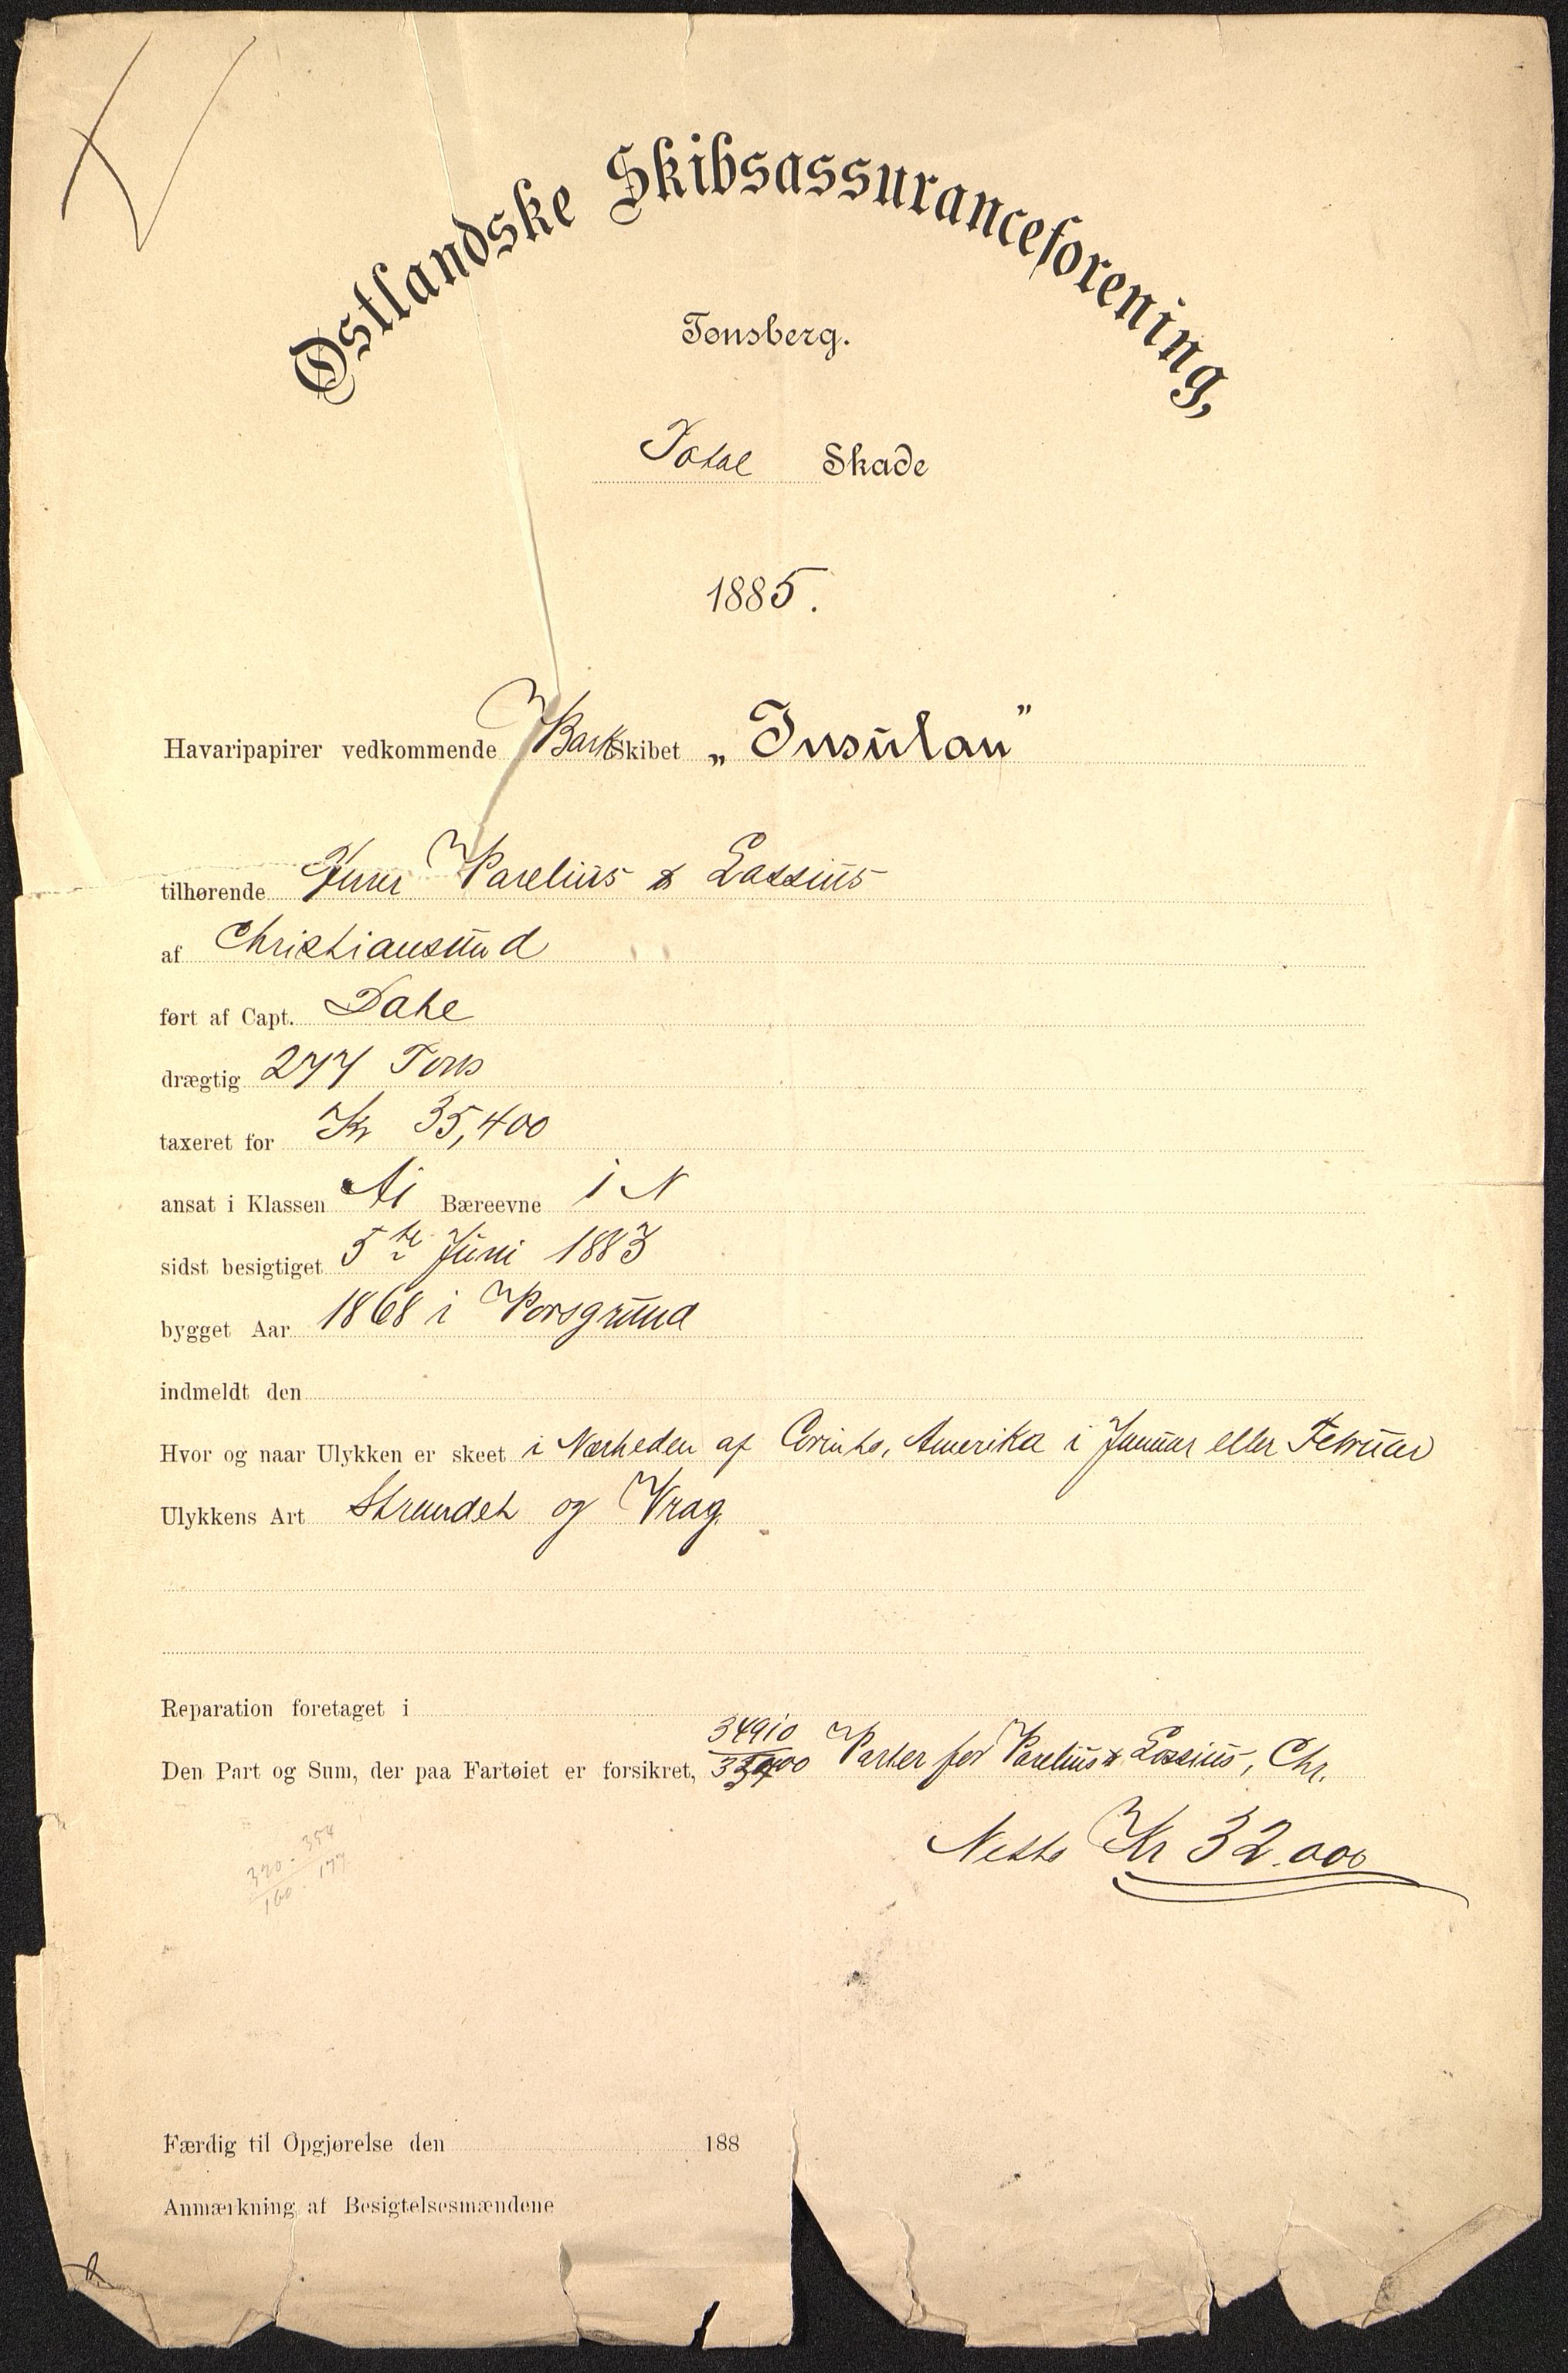 Østlandske Skibsassuranceforening,
Tønsberg.
Total Skade
1885.
Havaripapirer vedkommende Bark Skibet „Insulan"
tilhørende Herrer Parelius & Lossius
af Christiansund
ført af Capt. Dahl
drægtig 277 Tons
taxeret for Kr 35,400
ansat i Klassen A1 Bæreevne 1 N
sidst besigtiget 5te Juni 1883
bygget Aar 1868 i Porsgrund
indmeldt den
Hvor og naar Ulykken er skeet i Nærheden af Corinto, Amerika i Januar eller Februar
Ulykkens Art Strandet og Vrag.
Reparation foretaget i
34910
Den Part og Sum, der paa Fartøiet er forsikret, Parter for Parelius & Lossius, Chr.
Netto Kr 32.000
354
177
160
Færdig til Opgjørelse den 188
Anmærkning af Besigtelsesmændene